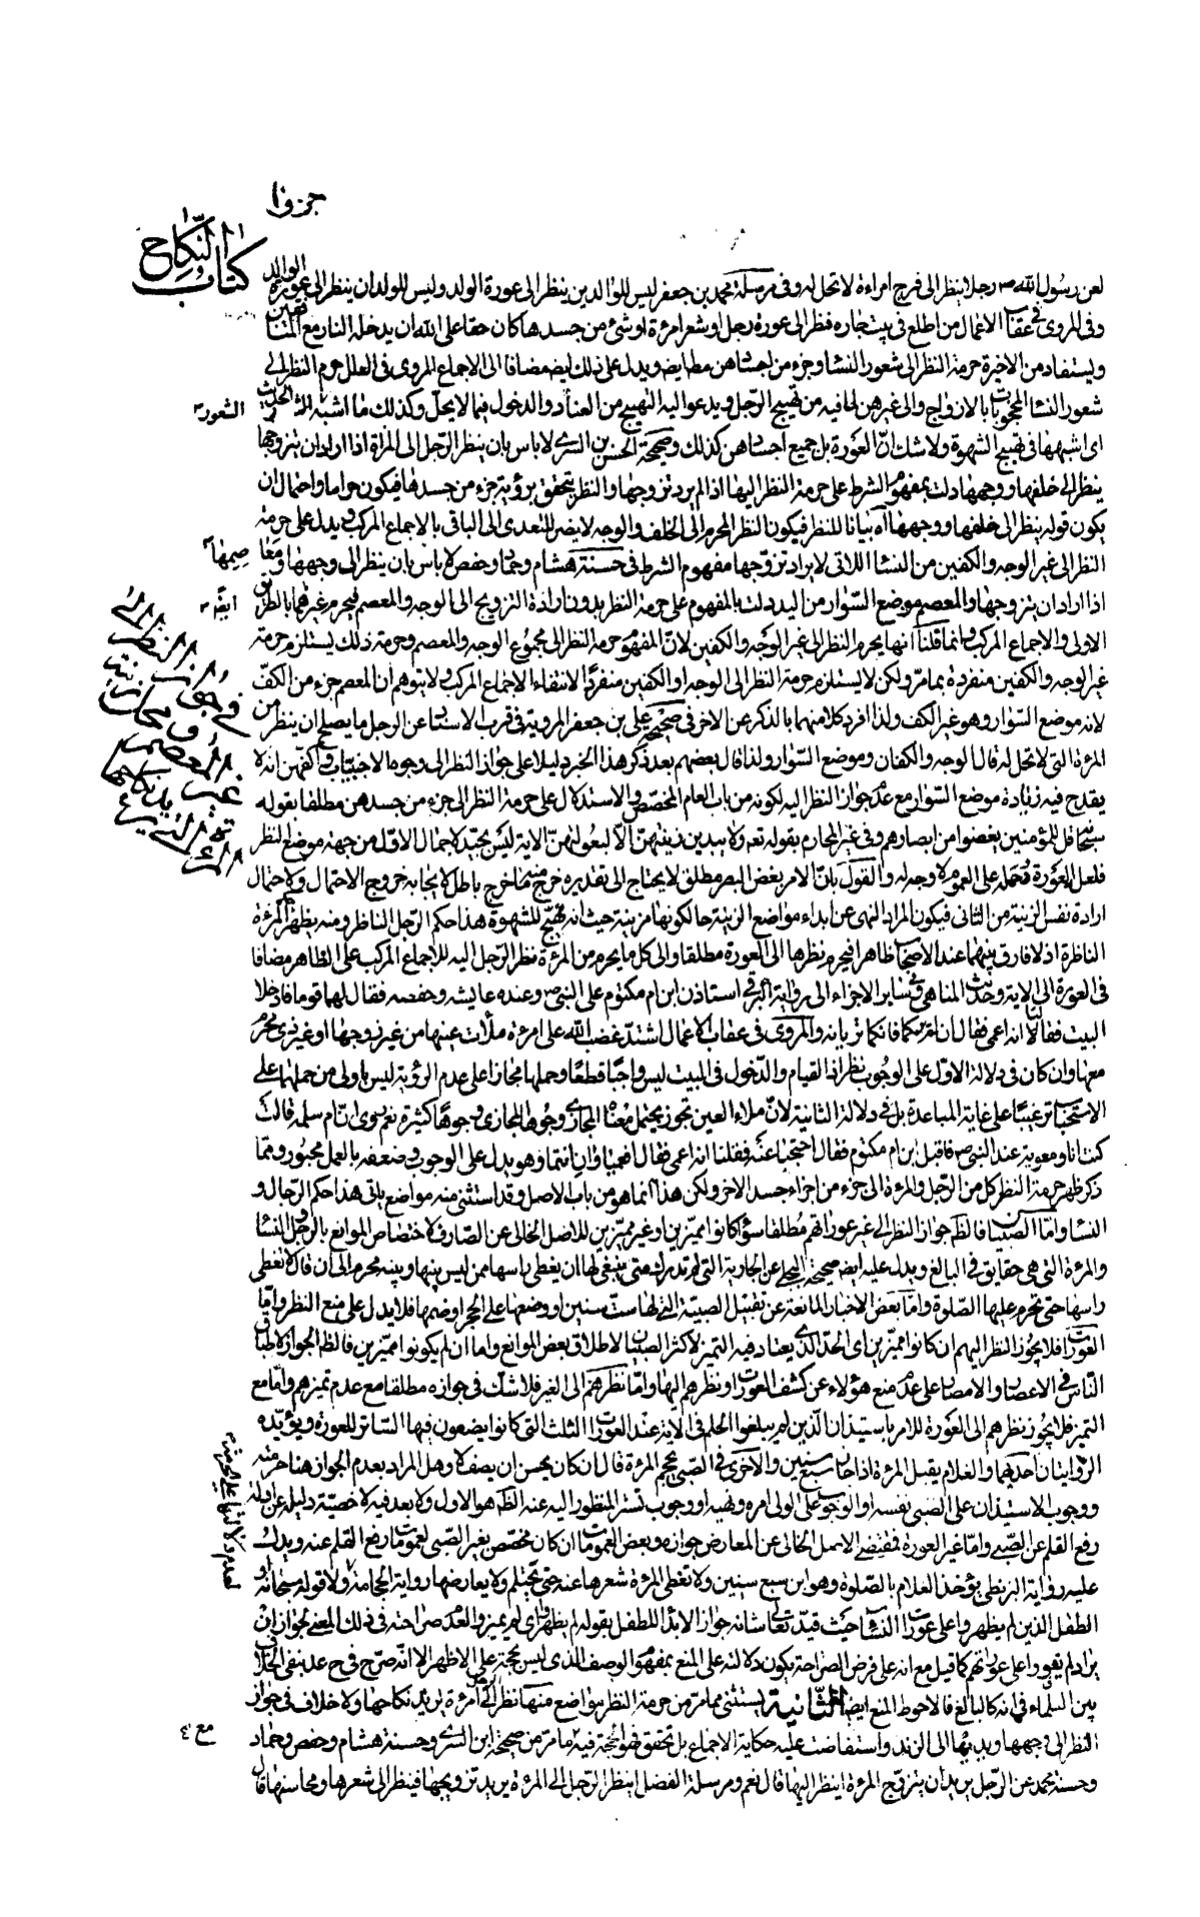 جزو ١
كتاب النكاح
لعن رسول الله ص رجلا ينظر الى فرج امراءة لا تحل له وفى مرسلة محمد بن جعفر ليس للوالدين ينظر الى عورة الولد وليس للولد ان ينظر الى عورة الوالد
وفى المروى فى عقاب الاعمال من اطلع فى بيت جاره فنظر الى عورة رجل او شعر امرءة او شئ من جسدها كان حقا على الله ان يدخله النار مع المنافقين
ويستفاد من الاخيرة حرمة النظر الى شعور النسا وجزء من اجسادهن مط ايضا ويدل على ذلك ايضا مضافا الى الاجماع المروى فى العلل حرم النظر الى
شعور النسا المحجوبات بالازواج والى غيرهن لما فيه من تهييج الرجل وما يدعو اليه التهييج من الفساد والدخول فيما لا يحل وكذلك ما اشبه الشعور الحديث
اى اشبهها فى تهييج الشهوة ولا شك ان العورة بل جميع اجسادهن كذلك وصحيحة الحسن بن السرى لا باس بان ينظر الرجل الى المرأة اذا اراد ان يتزوجها
ينظر الى خلفها ووجهها دلت بمفهوم الشرط على حرمة النظر اليها اذا لم يرد تزوجها والنظر يتحقق برؤية جزء من جسدها فيكون حراما واحتمال ان
يكون قوله ينظر الى خلفها ووجهها آه بيانا للنظر فيكون النظر المحرم الى الخلف والوجه لا يضر للتعدى الى الباقى بالاجماع المركب ويدل على حرمة
النظر الى غير الوجه والكفين من النسا اللاتى لا يراد تزوجها مفهوم الشرط فى حسنة هشام وحماد وحفص لا باس بان ينظر الى وجهها ومعاصمها
اذا اراد ان يتزوجها والمعصم موضع السوار من اليد دلت بالمفهوم على حرمة النظر بدون ارادة التزويج الى الوجه والمعصم فيحرم غيرهما بالطريق
الاولى والاجماع المركب وانما قلنا انها يحرم النظر الى غير الوجه والكفين لان المفهوم حرمة النظر الى مجموع الوجه والمعصم وحرمة ذلك يستلزم حرمة
غير الوجه والكفين منفردة بما مر ولكن لا يستلزم حرمة النظر الى الوجه او الكفين منفردا لانتفاء الاجماع المركب ولا يتوهم ان المعصم جزء من الكف
لانه موضع السوار وهو غير الكف ولذا افرد كلا منهما بالذكر عن الاخر فى صحيحة على بن جعفر المروية فى قرب الاسناد عن الرجل ما يصلح ان ينظر من
المرءة التى لا تحل له قال الوجه والكفان وموضع السوار ولذا قال بعضهم بعد ذكر هذا الخبر دليلا على جواز النظر الى وجوه الاجنبيات واكفهن انه لا
يقدح فيه زيادة موضع السوار مع عدم جواز النظر اليه لكونه من باب العام المخصص والاستدلال على حرمة النظر الى جزء من جسدهن مطلقا بقوله
سبحانه قل للمؤمنين يغضوا من ابصارهم وفى غير المحارم بقوله تعه ولا يبدين زينتهن الا لبعولتهن الاية ليس بجيد لاجمال الاول من جهة موضع النظر
فلعل العورة فحمله على العموم لا وجه له والقول بان الامر بغض البصر مطلق لا يحتاج الى تقدير خرج منه ما خرج باطل لايجابه خروج الاحتمال ولاحتمال
ارادة نفس الزينة من الثانى فيكون المراد النهى عن ابداء مواضع الزينة حالكونها مزينة حيث انه مهيج للشهوة هذا حكم الرجل الناظر ومنه يظهر المرءة
الناظرة اذ لا فارق بينهما عند الاصحاب ظاهرا فيحرم نظرها الى العورة مطلقا والى كل ما يحرم من المرءة نظر الرجل اليه للاجماع المركب على الظاهر مضافا
فى العورة الى الاية وحديث المناهى وفى ساير الاجزاء الى رواية البرقى استاذن ابن ام مكتوم على النبى ص وعنده عايشه وحفصه فقال لهما قوما فادخلا
البيت فقالتا انه اعمى فقال ان لم يركما فانكما تريانه والمروى فى عقاب الاعمال اشتد غضب الله على امرءة ملأت عينها من غير زوجها او غير ذى محرم
معها وان كان فى دلالة الاول على الوجوب نظر اذ القيام والدخول فى البيت ليس واجبا قطعا وحملها مجازا على عدم الرؤية ليس باولى من حملها على
الاستحباب ترغيبا على غاية المباعدة بل فى دلالة الثانية لان ملاء العين تجوز يحتمل معناه المجازى وجوها للمجازى وجوها كثيرة نعم روى ان ام سلمه قالت
كنت انا وميمونة عند النبى ص فاقبل ابن ام مكتوم فقال احتجبا عنه فقلنا انه اعمى فقال افعمياوان انتما وهو يدل على الوجوب وضعفه بالعمل مجبور ومما
ذكر ظهر حرمة النظر كل من الرجل والمرءة الى جزء من اجزاء جسد الاخر ولكن هذا انما هو من باب الاصل وقد استثنى منه مواضع ياتى هذا حكم الرجال و
النسا واما الصبيان فالظ جواز النظر الى غير عوراتهم مطلقا سواء كانوا مميزين او غير مميزين للاصل الخالى عن الصارف لاختصاص الموانع بالرجل والنسا
والمرءة التى هى حقايق فى البالغ ويدل عليه ايضا صحيحة البجلى عن الجارية التى لم تدرك متى ينبغى لها ان يغطى راسها ممن ليس بينها وبينه محرم الى ان قال لا تغطى
راسها حتى تحرم عليها الصلوة واما بعض الاخبار المانعة عن تقبيل الصبية التى لها ست سنين او وضعها على الحجر او ضمها فلا يدل على منع النظر واما
العورات فلا يجوز النظر اليهم ان كانوا مميزين اى الحد الذى يعتاد فيه التميز لاكثر الصبيان لاطلاق بعض الموانع واما ان لم يكونوا مميزين فالظ الجواز لاطباق
الناس فى الاعصار والامصار على عدم منع هؤلاء عن كشف العورات ونظرهم اليها واما نظرهم الى الغير فلا شك فى جوازه مطلقا مع عدم تميزهم واما مع
التميز فلا يجوز نظرهم الى العورة للامر باستيذان الذين لم يبلغوا الحلم فى الاية عند العورات الثلث التى كانوا يضعون فيها الساتر للعورة ويؤيده
الروايتان احدهما والغلام يقبل المرءة اذا جاز سبع سنين والاخرى فى الصبى يحجم المرءة قال ان كان يحسن ان يصف لا وهل المراد بعدم الجواز هنا حرمته
ووجوب الاستيذان على الصبى نفسه او الوجوب على الولى امره ونهيه او وجوب تستر المنظور اليه عنه الظ هو الاول ولا بعد فيه لاخصية دليله عن ادلة
رفع القلم عن الصبى واما غير العورة فمقتضى الاصل الخالى عن المعارض جوازه وبعض العمومات ان كان مختص بغير الصبى لعمومات رفع القلم عنه ويدل
عليه رواية البزنطى يؤخذ الغلام بالصلوة وهو ابن سبع سنين ولا تغطى المرءة شعرها عنه حتى يحتلم ولا يعارضها رواية الحجامة ولا قوله سبحانه او
الطفل الذين لم يظهروا على عورات النسا حيث قيد تعالى شانه جواز الابداء للطفل بقوله لم يظهروا اى لم يميزوا لعدم صراحته فى ذلك المعنى لجواز ان
يراد لم يقووا على عوراتهم كما قيل مع انه على فرض الصراحة يكون دلالته على المنع بمفهوم الوصف الذى ليس بحجة على الاظهر الا انه صرح فى ح عد بنفى الخلاف
بين العلماء فى انه كالبالغ فالاحوط المنع ايضا الثانية يستثنى مما مر من حرمة النظر مواضع منها نظر الرجل الى امرءة يريد نكاحها ولا خلاف فى جواز
النظر الى وجهها ويديها الى الزند واستفاضت عليه حكاية الاجماع بل تحقق فهو الحجة فيه مع ما مر من صحيحة ابن السرى وحسنة هشام وحفص وحماد
وحسنة محمد عن الرجل يريد ان يتزوج المرءة اينظر اليها قال نعم ومرسلة الفضل اينظر الرجل الى المرءة يريد تزويجها فينظر الى شعرها ومحاسنها قال
الشعور
صمها
ايضا
فى جواز النظر الى
غير المعصم
مع